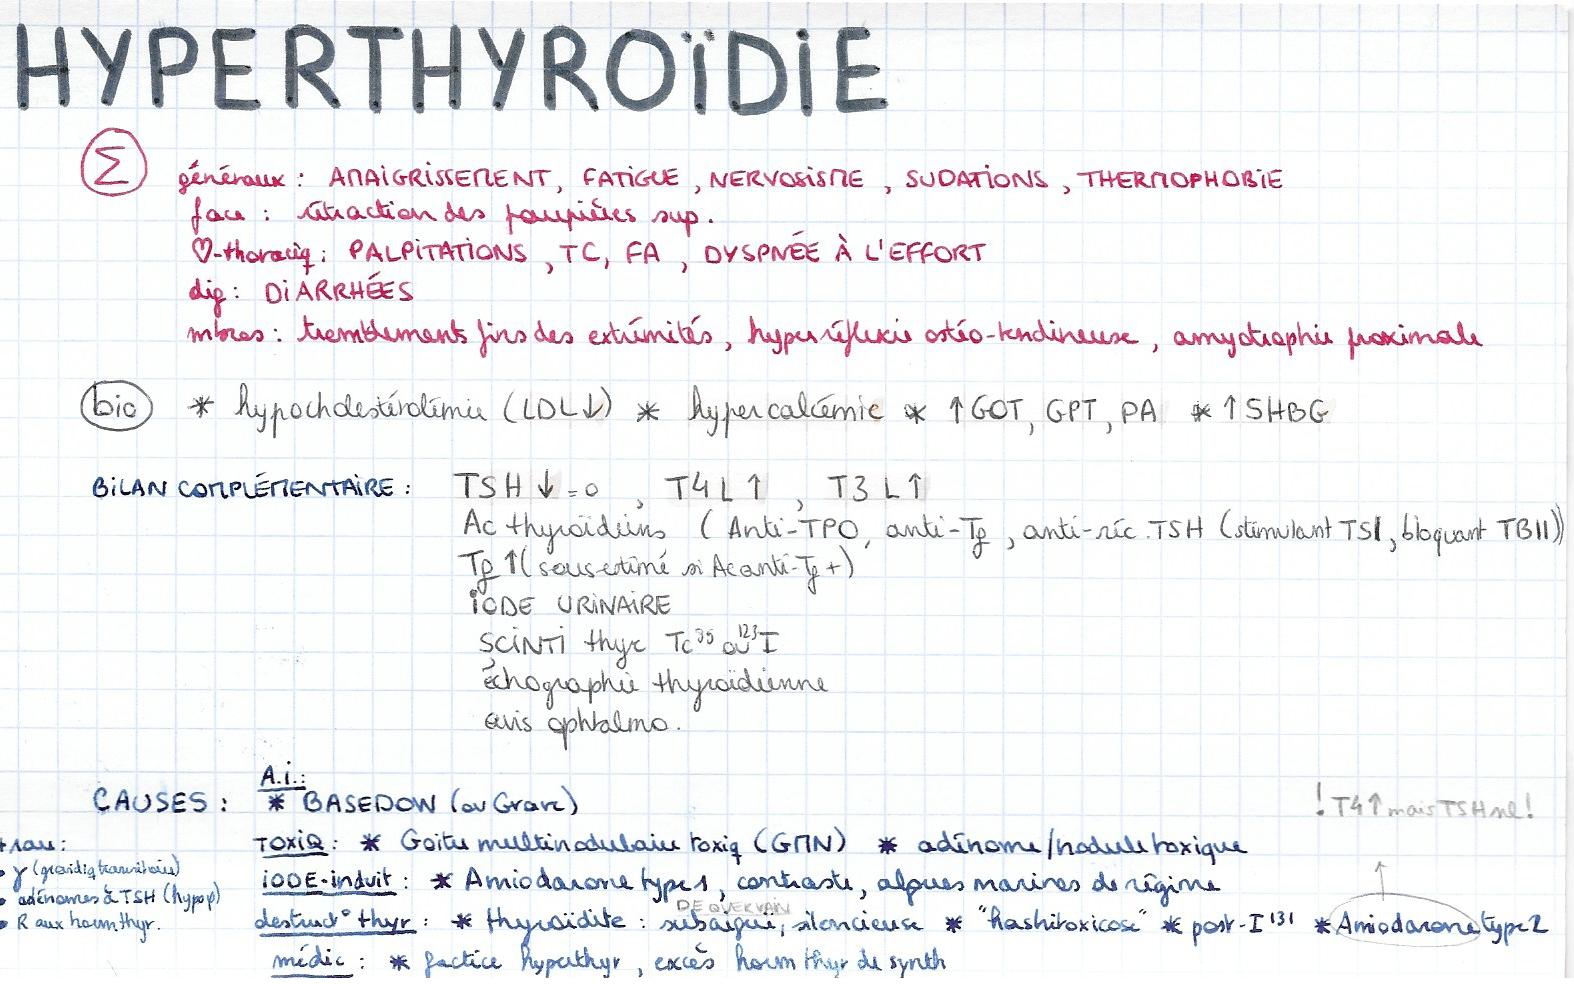 HYPERTHYROÏDIE
Σ généraux : AMAIGRISSEMENT, FATIGUE, NERVOSISME, SUDATIONS, THERMOPHOBIE
face : rétraction des paupières sup.
♡-thoraciq : PALPITATIONS, TC, FA, DYSPNÉE À L'EFFORT
dig : DIARRHÉES
mbres : tremblements fins des extrémités, hyperréflexie ostéo-tendineuse, amyotrophie proximale
bio * hypocholestérolémie (LDL↓) * hypercalcémie * ↑GOT, GPT, PA * ↑SHBG
BILAN COMPLÉMENTAIRE : TSH ↓ = 0, T4L ↑, T3L ↑
Ac thyroïdiens (Anti-TPO, anti-Tg, anti-réc.TSH (stimulant TSI, bloquant TBII))
Tg ↑ (sous-estimé si Ac anti-Tg +)
IODE URINAIRE
SCINTI thyr Tc⁹⁹ ou ¹²³I
échographie thyroïdienne
avis ophtalmo.
A.i. :
CAUSES : * BASEDOW (ou Grave)
! T4↑ mais TSH nl !
+ rare :
TOXIQ : * Goitre multinodulaire toxiq (GMN) * adénome/nodule toxique
• γ (gravidiq transitoire)
iODE-induit : * Amiodarone type 1, contraste, algues marines de régime
• adénomes à TSH (hypop)
DE QUERVAIN
destruct° thyr : * thyroïdite : subaiguë, silencieuse * "hashitoxicose" * post-I¹³¹ * Amiodarone type 2
• R aux horm thyr.
médic : * factice hyperthyr, excès horm thyr de synth